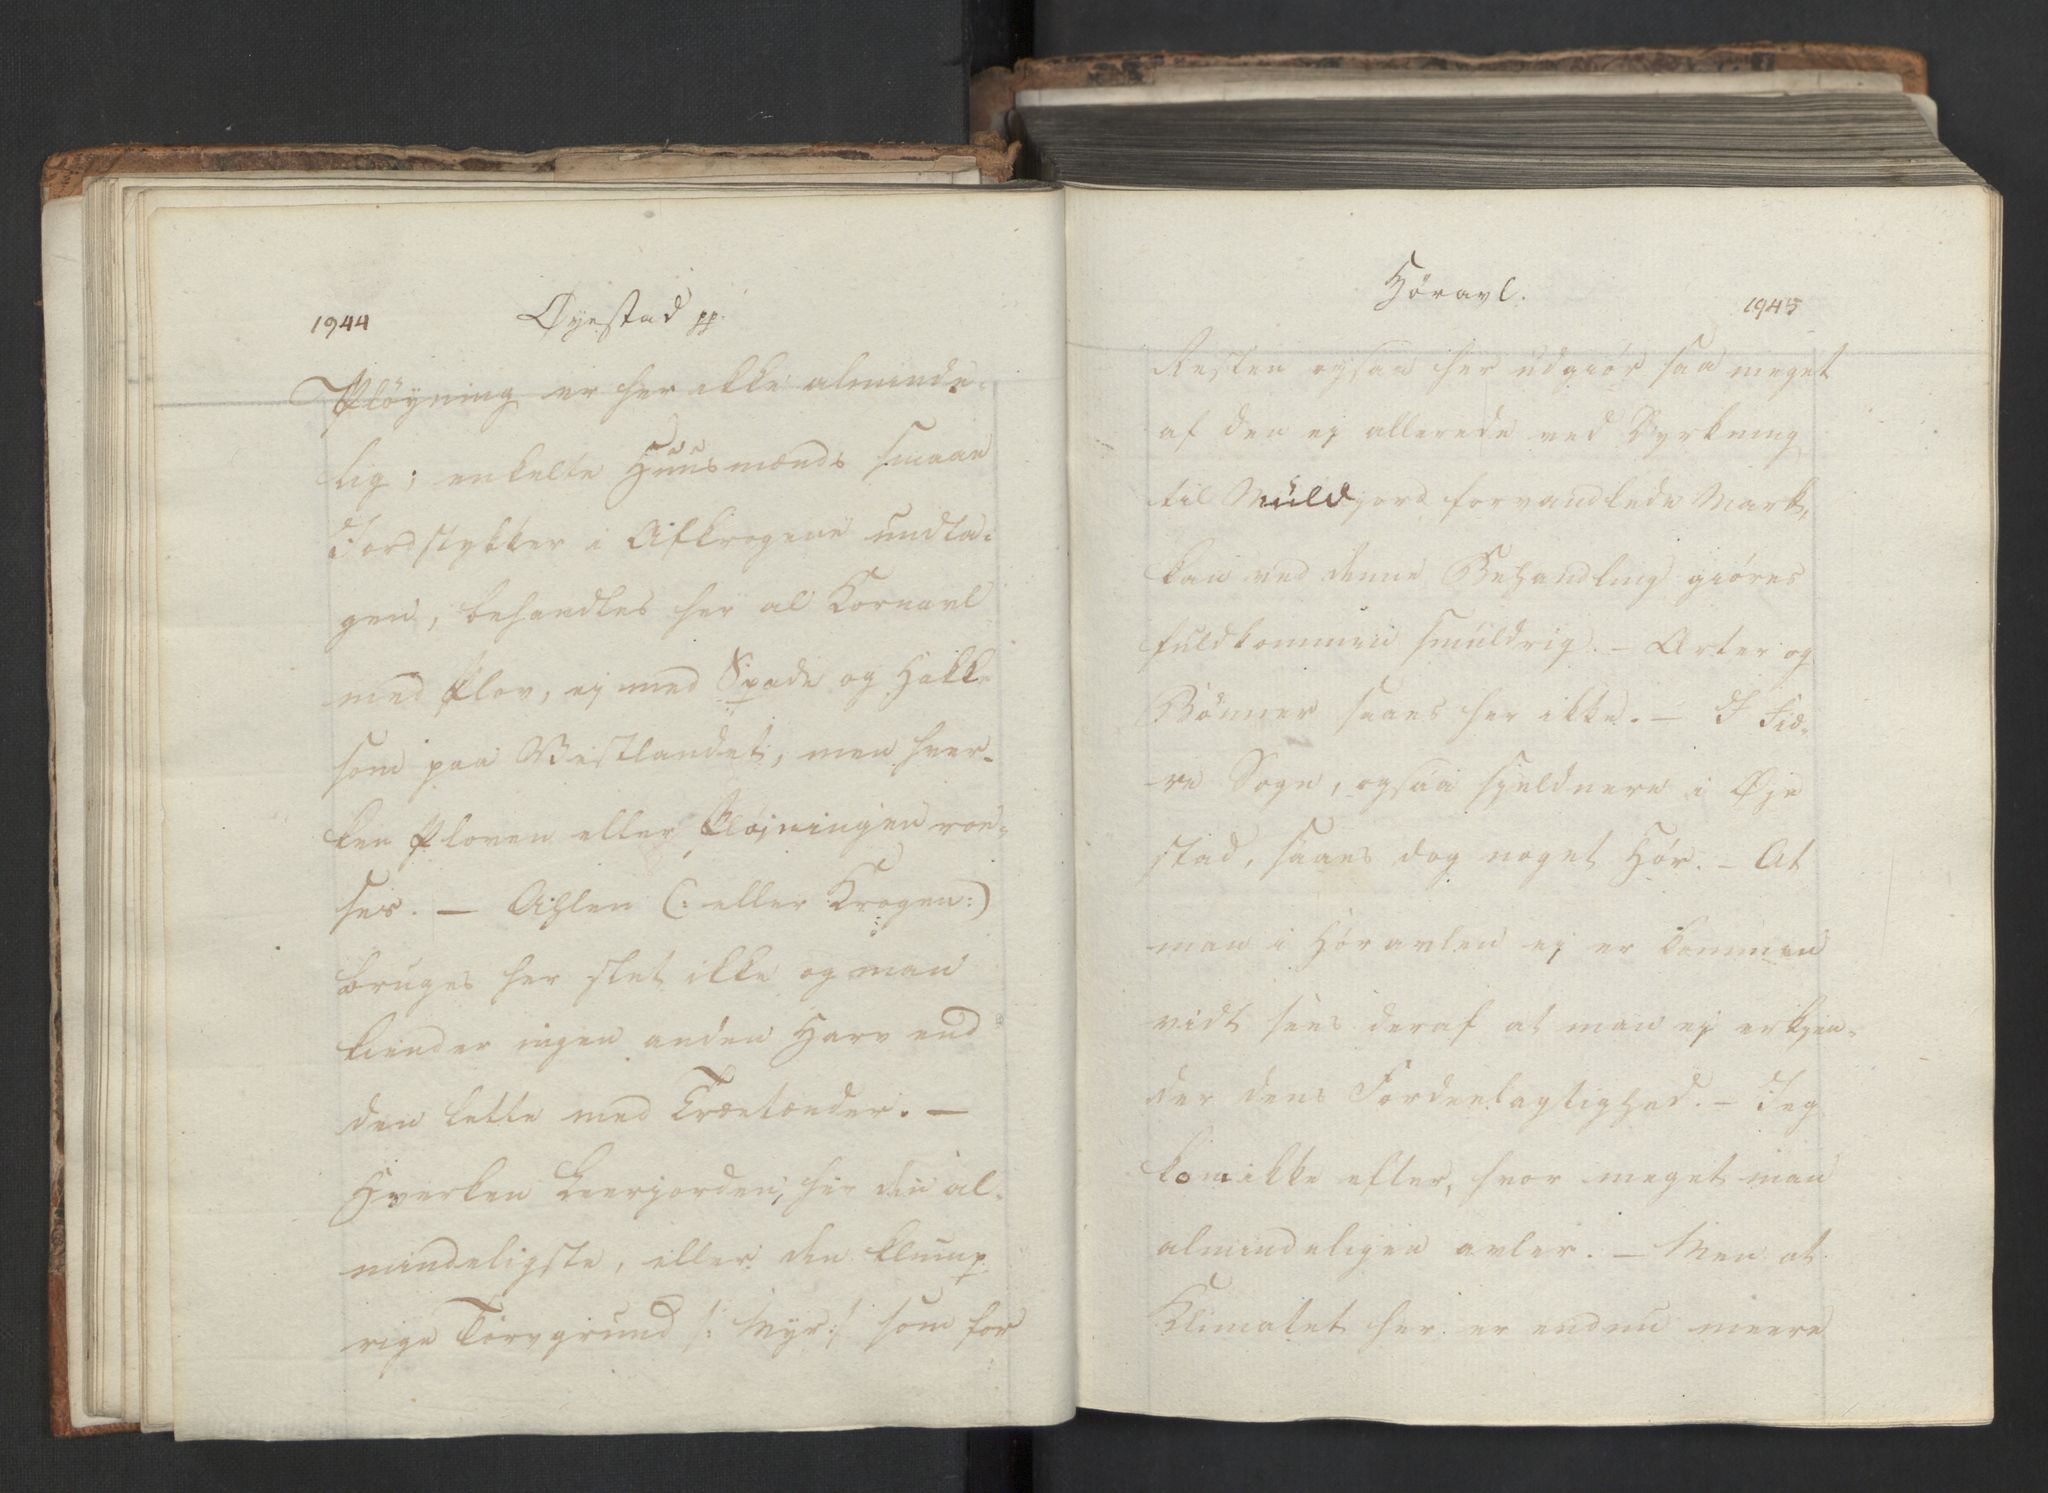 1944
Øyestad pp.
Pløyning er her ikke alminde-
lig; enkelte Huusmænds smaae
Jordstykker i Afkrogene undta-
gen, behandles her al Kornavl
med Plov, ej med Spade og Hakke
som paa Vestlandet, men hver-
ken Ploven eller Pløjningen roe-
ses. — Ahlen (: eller Krogen:)
bruges her slet ikke og man
kiender ingen anden Harv end
den lette med Trætænder. —
Hverken Leerjorden, her den al-
mindeligste, eller den klump-
rige Törvgrund /: Myr:/ som for
Høravl.
1945
Resten ogsaa her udgiør saa meget
af den ej allerede ved Dyrkning
til Muldjord forvandlede Mark,
kan ved denne Behandling giöres
fuldkommen smuldrig. — Arter og
Bönner saaes her ikke. — I Fiæ-
re Sogn, ogsaa sjeldnere i Øje
stad, saaes dog noget Hör. — At
man i Höravlen ej er kommen
vidt sees deraf at man ej erkjen-
der dens Fordeelagtighed. — Jeg
kom ikke efter, hvor meget man
almindeligen avler. — Men at
Klimatet her er endnu meere